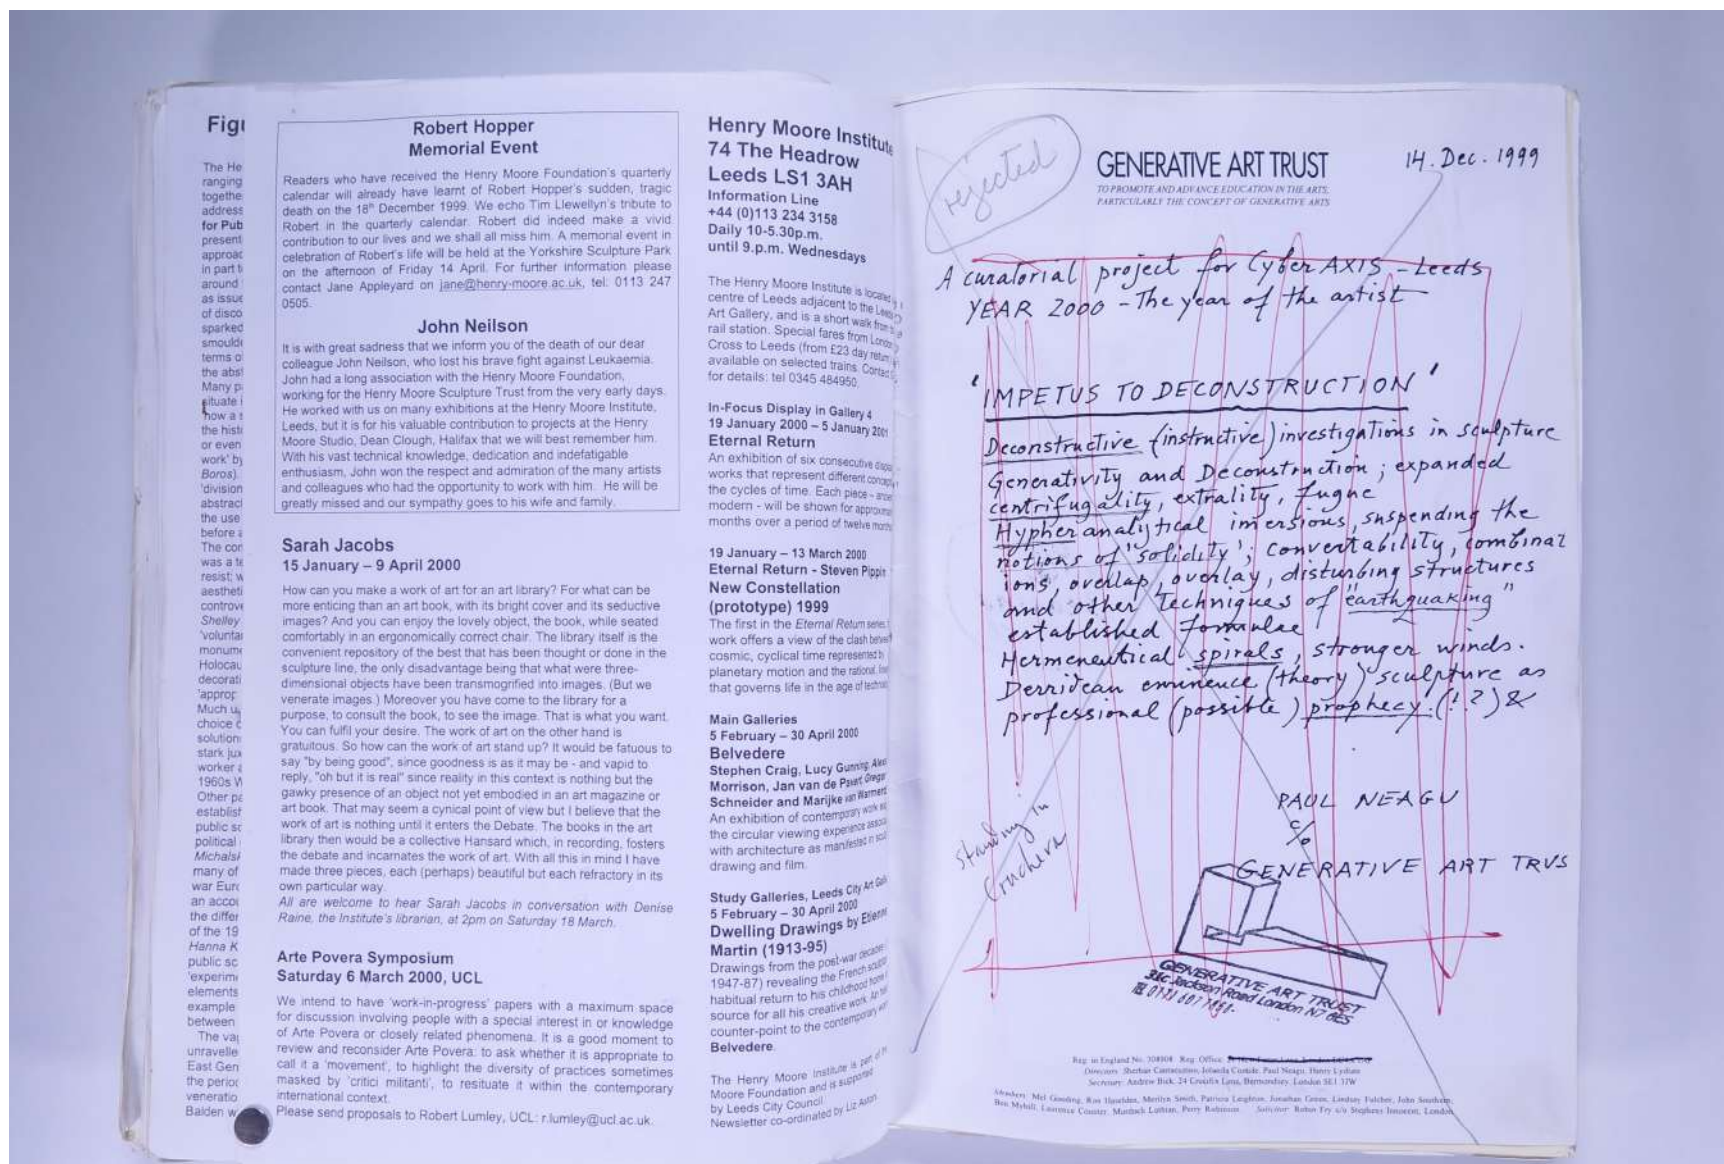 Figu
The He
ranging
togethe
address
for Pub
present
approac
in part t
around
as issue
of disco
sparked
smoulde
terms o
the abst
Many p
situate i
how a s
the histo
or even
work' by
Boros).
'division
abstract
the use
before a
The con
was a te
resist; w
aestheti
controve
Shelley
'volunta
monume
Holocau
decorati
'approp
Much u
choice o
solution
stark jux
worker a
1960s W
Other pa
establish
public sc
political
Michalsk
many of
war Euro
an accou
the differ
of the 19
Hanna K
public sc
'experime
elements
example
between
The var
unravelle
East Gen
the period
veneratio
Balden w
Robert Hopper
Memorial Event
Readers who have received the Henry Moore Foundation's quarterly
calendar will already have learnt of Robert Hopper's sudden, tragic
death on the 18th December 1999. We echo Tim Llewellyn's tribute to
Robert in the quarterly calendar. Robert did indeed make a vivid
contribution to our lives and we shall all miss him. A memorial event in
celebration of Robert's life will be held at the Yorkshire Sculpture Park
on the afternoon of Friday 14 April. For further information please
contact Jane Appleyard on jane@henry-moore.ac.uk, tel: 0113 247
0505.
John Neilson
It is with great sadness that we inform you of the death of our dear
colleague John Neilson, who lost his brave fight against Leukaemia.
John had a long association with the Henry Moore Foundation,
working for the Henry Moore Sculpture Trust from the very early days.
He worked with us on many exhibitions at the Henry Moore Institute,
Leeds, but it is for his valuable contribution to projects at the Henry
Moore Studio, Dean Clough, Halifax that we will best remember him.
With his vast technical knowledge, dedication and indefatigable
enthusiasm, John won the respect and admiration of the many artists
and colleagues who had the opportunity to work with him. He will be
greatly missed and our sympathy goes to his wife and family.
Sarah Jacobs
15 January – 9 April 2000
How can you make a work of art for an art library? For what can be
more enticing than an art book, with its bright cover and its seductive
images? And you can enjoy the lovely object, the book, while seated
comfortably in an ergonomically correct chair. The library itself is the
convenient repository of the best that has been thought or done in the
sculpture line, the only disadvantage being that what were three-
dimensional objects have been transmogrified into images. (But we
venerate images.) Moreover you have come to the library for a
purpose, to consult the book, to see the image. That is what you want.
You can fulfil your desire. The work of art on the other hand is
gratuitous. So how can the work of art stand up? It would be fatuous to
say "by being good", since goodness is as it may be - and vapid to
reply, "oh but it is real" since reality in this context is nothing but the
gawky presence of an object not yet embodied in an art magazine or
art book. That may seem a cynical point of view but I believe that the
work of art is nothing until it enters the Debate. The books in the art
library then would be a collective Hansard which, in recording, fosters
the debate and incarnates the work of art. With all this in mind I have
made three pieces, each (perhaps) beautiful but each refractory in its
own particular way.
All are welcome to hear Sarah Jacobs in conversation with Denise
Raine, the Institute's librarian, at 2pm on Saturday 18 March.
Arte Povera Symposium
Saturday 6 March 2000, UCL
We intend to have 'work-in-progress' papers with a maximum space
for discussion involving people with a special interest in or knowledge
of Arte Povera or closely related phenomena. It is a good moment to
review and reconsider Arte Povera: to ask whether it is appropriate to
call it a 'movement', to highlight the diversity of practices sometimes
masked by 'critici militanti', to resituate it within the contemporary
international context.
Please send proposals to Robert Lumley, UCL: r.lumley@ucl.ac.uk.
Henry Moore Institute
74 The Headrow
Leeds LS1 3AH
Information Line
+44 (0)113 234 3158
Daily 10-5.30p.m.
until 9.p.m. Wednesdays
The Henry Moore Institute is located
centre of Leeds adjacent to the Leeds
Art Gallery, and is a short walk from
rail station. Special fares from London
Cross to Leeds (from £23 day return
available on selected trains. Contact
for details: tel 0345 484950.
In-Focus Display in Gallery 4
19 January 2000 – 5 January 2001
Eternal Return
An exhibition of six consecutive
works that represent different
the cycles of time. Each piece -
modern - will be shown for
months over a period of twelve months
19 January – 13 March 2000
Eternal Return - Steven Pippin
New Constellation
(prototype) 1999
The first in the Eternal Return series
work offers a view of the clash between
cosmic, cyclical time represented by
planetary motion and the rational,
that governs life in the age of
Main Galleries
5 February – 30 April 2000
Belvedere
Stephen Craig, Lucy Gunning,
Morrison, Jan van de Pavert, Gregor
Schneider and Marijke van Warmerd
An exhibition of contemporary work
the circular viewing experience
with architecture as manifested in
drawing and film.
Study Galleries, Leeds City Art
5 February – 30 April 2000
Dwelling Drawings by Etienne
Martin (1913-95)
Drawings from the post-war decades
1947-87) revealing the French
habitual return to his childhood home
source for all his creative work. An
counter-point to the contemporary
Belvedere.
The Henry Moore Institute is part of the
Moore Foundation and is supported
by Leeds City Council.
Newsletter co-ordinated by Liz Aston
rejected
GENERATIVE ART TRUST
TO PROMOTE AND ADVANCE EDUCATION IN THE ARTS,
PARTICULARLY THE CONCEPT OF GENERATIVE ARTS
14. Dec. 1999
A curatorial project for Cyber AXIS – Leeds
YEAR 2000 – The year of the artist
'IMPETUS TO DECONSTRUCTION'
Deconstructive (instructive) investigations in sculpture
Generativity and Deconstruction; expanded
centrifugality, extrality, fugue
Hypher analytical imersions, suspending the
notions of "solidity"; convertability, combinat
ions, overlap, overlay, disturbing structures
and other techniques of "earthquaking"
established formulae
Hermeneutical spirals, stronger winds.
Derridean eminence (theory) sculpture as
professional (possible) prophecy. (!?) &
PAUL NEAGU
c/o
GENERATIVE ART TRUS
Standing in
GENERATIVE ART TRUST
31c Jackson Road London N7 6ES
Reg. in England No. Reg. Office:
Directors: Sherban Cantacuzino, Paul Neagu, Henry Lydiate
Secretary: Andrew Bick, 24 Crucifix Lane, Bermondsey, London SE1
Members: Mel Gooding, Ron Haselden, Merilyn Smith, Patricia Leighton, Jonathan Green, Lindsay Fulcher, John Southern
Ben Mehill, Laurence Coester, Murdoch Lothian, Perry Robinson. Solicitor: Robin Fry c/o Stephens Innocent, London